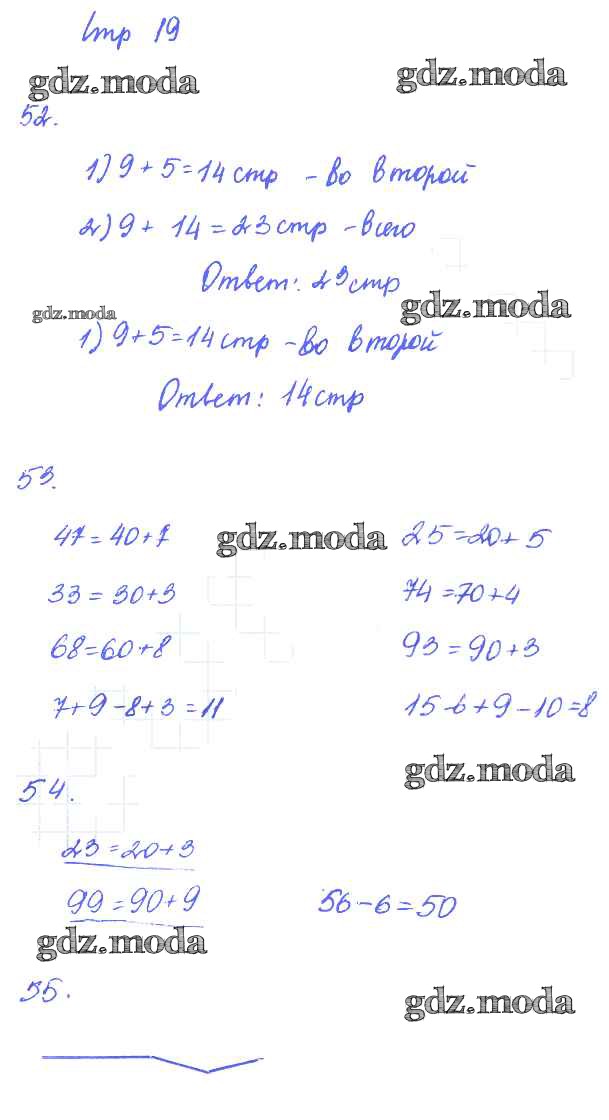 Стр 19
gdz.moda gdz.moda
52.
1) 9 + 5 = 14 стр - во второй
2) 9 + 14 = 23 стр - всего
Ответ: 23 стр
gdz.moda gdz.moda
1) 9 + 5 = 14 стр - во второй
Ответ: 14 стр
53.
47 = 40 + 7 gdz.moda 25 = 20 + 5
33 = 30 + 3 74 = 70 + 4
68 = 60 + 8 93 = 90 + 3
7 + 9 - 8 + 3 = 11 15 - 6 + 9 - 10 = 8
gdz.moda
54.
23 = 20 + 3
99 = 90 + 9 56 - 6 = 50
gdz.moda
55.
gdz.moda